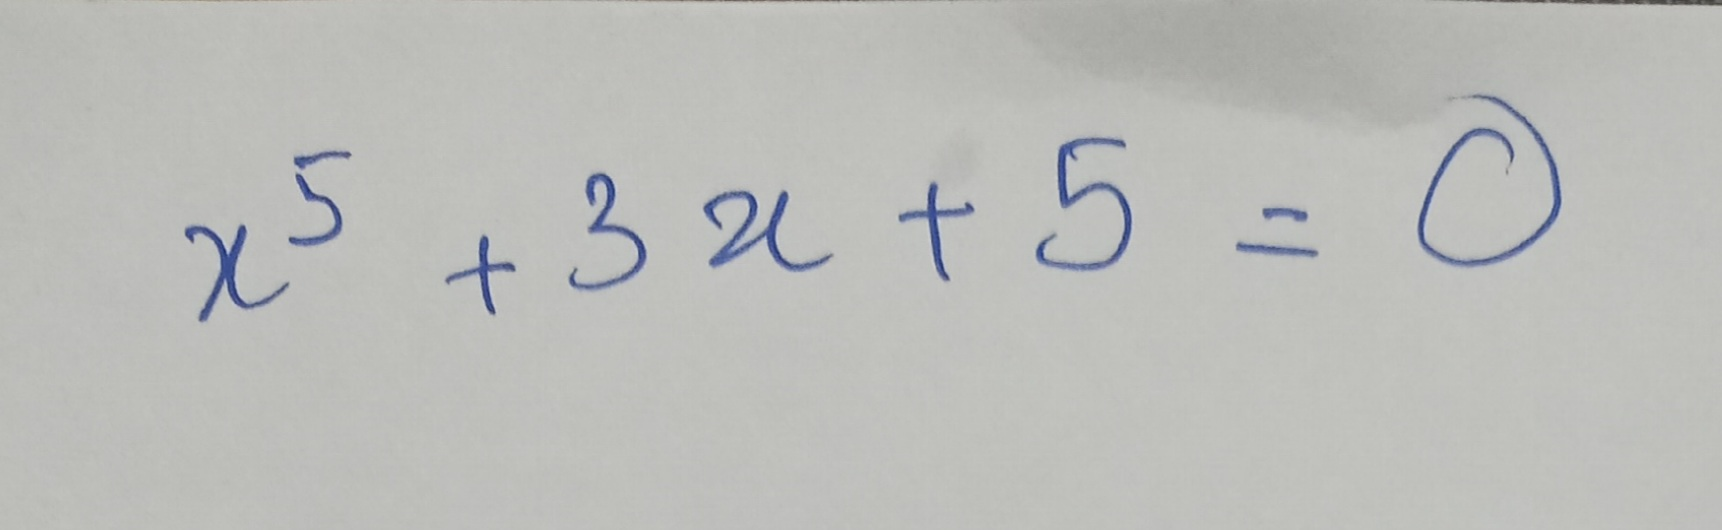 x⁵ + 3x + 5 = 0